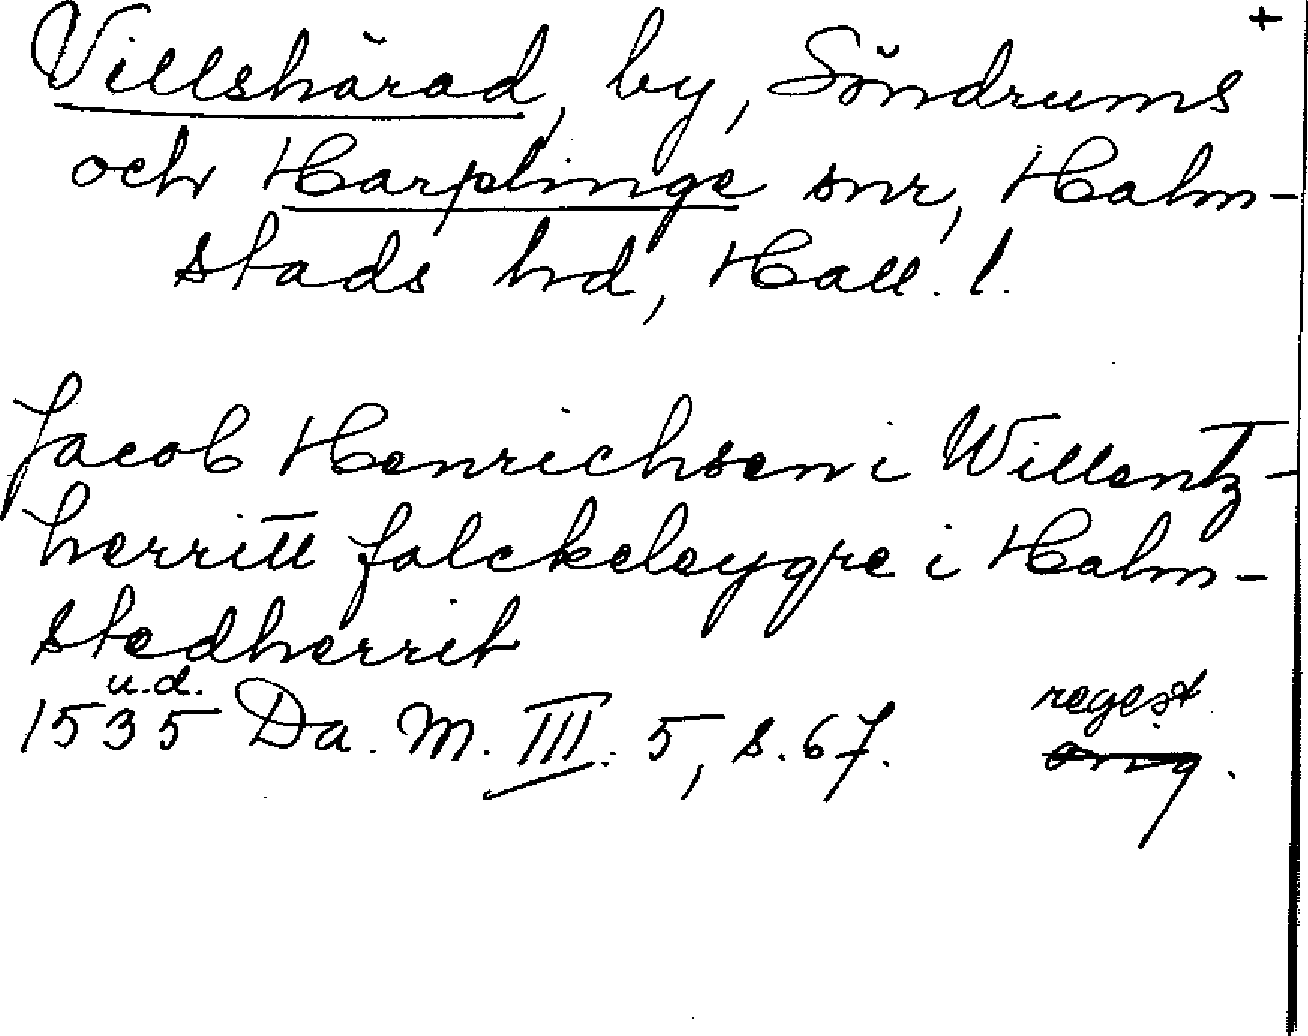 +
Villshärad, by, Söndrums
och Harplinge snr, Halm-
stads hd, Hall. l.
Jacob Henrichsen i Willentz-
herritt falckeleygre i Halm-
stedherrit
u.d.
1535 Da. M. III. 5, s. 67.
regest.
orig.